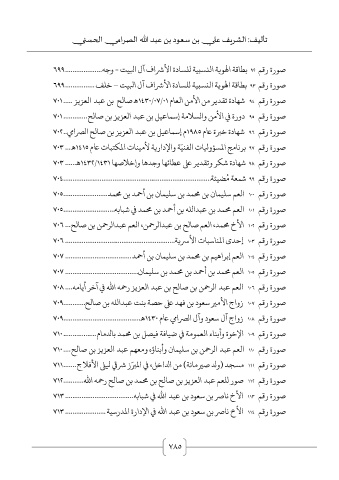 تأليف: الشريف علي بن سعود بن عبد الله الصرامي الحسني
صورة رقم ٩٢ بطاقة الهوية النسبية للسادة الأشراف آل البيت - وجه ............ ٦٩٩
صورة رقم ٩٣ بطاقة الهوية النسبية للسادة الأشراف آل البيت - خلف ............ ٦٩٩
صورة رقم ٩٤ شهادة تقدير من الأمن العام ١٤٣٠/٠٧/٠١هـ صالح بن عبد العزيز ..... ٧٠١
صورة رقم ٩٥ دورة في الأمن والسلامة إسماعيل بن عبد العزيز بن صالح ............ ٧٠١
صورة رقم ٩٦ شهادة خبرة عام ١٩٨٥م إسماعيل بن عبد العزيز بن صالح الصرامي .. ٧٠٢
صورة رقم ٩٧ برنامج المسؤوليات الفنية والإدارية لأمينات المكتبات عام ١٤١٥هـ ... ٧٠٣
صورة رقم ٩٨ شهادة شكر وتقدير على عطائها وجدها وإخلاصها ١٤٣٢/١٤٣١هـ ...... ٧٠٣
صورة رقم ٩٩ شمعة مُضيئة ............ ٧٠٤
صورة رقم ١٠٠ العم سليمان بن محمد بن سليمان بن أحمد بن محمد ............ ٧٠٥
صورة رقم ١٠١ العم محمد بن عبدالله بن أحمد بن محمد في شبابه ............ ٧٠٥
صورة رقم ١٠٢ الأخ محمد، العم صالح بن عبدالرحمن، العم عبدالرحمن بن صالح ... ٧٠٦
صورة رقم ١٠٣ إحدى المناسبات الأسرية ............ ٧٠٦
صورة رقم ١٠٤ العم إبراهيم بن محمد بن سليمان بن أحمد ............ ٧٠٧
صورة رقم ١٠٥ العم محمد بن أحمد بن محمد بن سليمان ............ ٧٠٧
صورة رقم ١٠٦ العم عبد الرحمن بن صالح بن عبد العزيز رحمه الله في آخر أيامه .... ٧٠٨
صورة رقم ١٠٧ زواج الأمير سعود بن فهد على حصة بنت عبدالله بن صالح ......... ٧٠٩
صورة رقم ١٠٨ زواج آل سعود وآل الصرامي عام ١٤٣٠هـ ............ ٧٠٩
صورة رقم ١٠٩ الإخوة وأبناء العمومة في ضيافة فيصل بن محمد بالدمام ............ ٧١٠
صورة رقم ١١٠ العم عبد الرحمن بن سليمان وأبناؤه ومعهم عبد العزيز بن صالح .... ٧١٠
صورة رقم ١١١ مسجد (ولد صيرمانة) من الداخل، في المبرّز شرقي ليلى الأفلاج ....... ٧١١
صورة رقم ١١٢ صور للعم عبد العزيز بن صالح بن محمد بن صالح رحمه الله ............ ٧١٢
صورة رقم ١١٣ الأخ ناصر بن سعود بن عبد الله في شبابه ............ ٧١٣
صورة رقم ١١٤ الأخ ناصر بن سعود بن عبد الله في الإدارة المدرسية ............ ٧١٣
٧٨٥